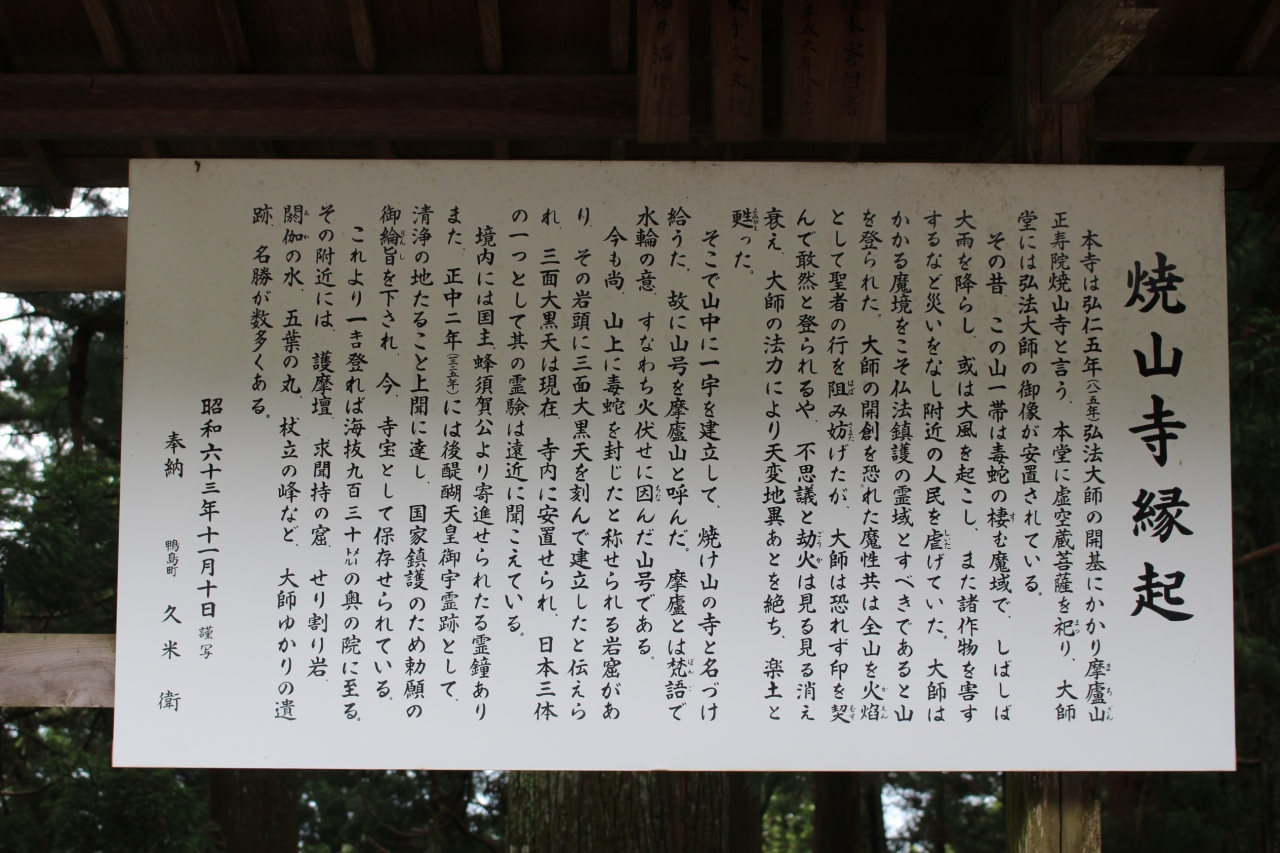 焼山寺縁起
本寺は弘仁五年(八一五年)弘法大師の開基にかかり摩廬山
正寿院焼山寺と言う。本堂に虚空蔵菩薩を祀り、大師
堂には弘法大師の御像が安置されている。
その昔、この山一帯は毒蛇の棲む魔域で、しばしば
大雨を降らし、或は大風を起こし、また諸作物を害す
するなど災いをなし附近の人民を虐げていた。大師は
かかる魔境をこそ仏法鎮護の霊域とすべきであると山
を登られた。大師の開創を恐れた魔性共は全山を火焰
として聖者の行を阻み妨げたが、大師は恐れず印を契
んで敢然と登られるや、不思議と劫火は見る見る消え
衰え、大師の法力により天変地異あとを絶ち、楽土と
甦った。
そこで山中に一宇を建立して、焼け山の寺と名づけ
給うた。故に山号を摩廬山と呼んだ。摩廬とは梵語で
水輪の意、すなわち火伏せに因んだ山号である。
今も尚、山上に毒蛇を封じたと称せられる岩窟があ
り、その岩頭に三面大黒天を刻んで建立したと伝えら
れ、三面大黒天は現在、寺内に安置せられ、日本三体
の一つとして其の霊験は遠近に聞こえている。
境内には国主、蜂須賀公より寄進せられたる霊鐘あり
また、正中二年(一三二五年)には後醍醐天皇御宇霊跡として、
清浄の地たること上聞に達し、国家鎮護のため勅願の
御綸旨を下され、今、寺宝として保存せられている。
これより一キロ登れば海抜九百三十メートルの奥の院に至る。
その附近には、護摩壇、求聞持の窟、せり割り岩、
閼伽の水、五葉の丸、杖立の峰など、大師ゆかりの遺
跡、名勝が数多くある。
昭和六十三年十一月十日 謹写
奉納 鴨島町 久米 衛